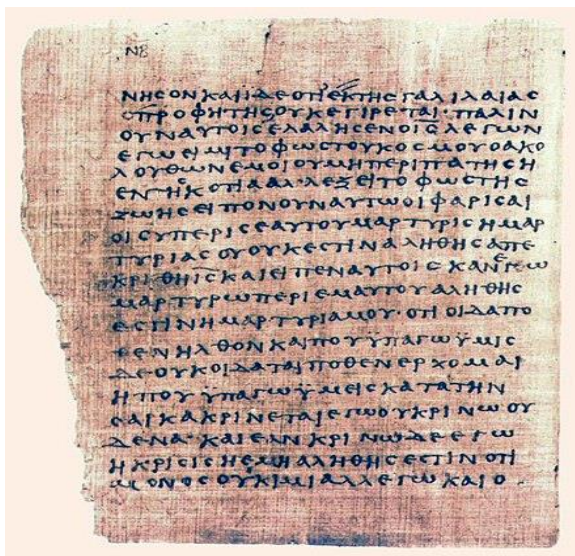 ΝΒ
ΝΗϹΟΝΚΑΙΪΔΕΟΤΙΕΚΤΗϹΓΑΛΙΛΑΙΑϹ
ΟΠΡΟΦΗΤΗϹΟΥΚΕΓΙΡΕΤΑΙ·ΠΑΛΙΝ
ΟΥΝΑΥΤΟΙϹΕΛΑΛΗϹΕΝΟΙϹΛΕΓΩΝ
ΕΓΩΕΙΜΙΤΟΦΩϹΤΟΥΚΟϹΜΟΥΟΑΚΟ
ΛΟΥΘΩΝΕΜΟΙΟΥΜΗΠΕΡΙΠΑΤΗϹΗ
ΕΝΤΗϹΚΟΤΙΑΑΛΛΕΞΕΙΤΟΦΩϹΤΗϹ
ΖΩΗϹΕΙΠΟΝΟΥΝΑΥΤΩΟΙΦΑΡΙϹΑΙ
ΟΙϹΥΠΕΡΙϹΕΑΥΤΟΥΜΑΡΤΥΡΙϹΗΜΑΡ
ΤΥΡΙΑϹΟΥΟΥΚΕϹΤΙΝΑΛΗΘΗϹΑΠΕ
ΚΡΙΘΗΙ̅Ϲ̅ΚΑΙΕΙΠΕΝΑΥΤΟΙϹΚΑΝΕΓΩ
ΜΑΡΤΥΡΩΠΕΡΙΕΜΑΥΤΟΥΑΛΗΘΗϹ
ΕϹΤΙΝΗΜΑΡΤΥΡΙΑΜΟΥ·ΟΤΙΟΙΔΑΠΟ
ΘΕΝΗΛΘΟΝΚΑΙΠΟΥΫΠΑΓΩΫΜΙϹ
ΔΕΟΥΚΟΙΔΑΤΑΙΠΟΘΕΝΕΡΧΟΜΑΙ
ΗΠΟΥΫΠΑΓΩΫΜΕΙϹΚΑΤΑΤΗΝ
ϹΑΡΚΑΚΡΙΝΕΤΑΙΕΓΩΟΥΚΡΙΝΩΟΥ
ΔΕΝΑ·ΚΑΙΕΑΝΚΡΙΝΩΔΕΕΓΩ
ΗΚΡΙϹΙϹΗΕΜΗΑΛΗΘΗϹΕϹΤΙΝΟΤΙ
ΜΟΝΟϹΟΥΚΙΜΙΑΛΛΕΓΩΚΑΙΟ